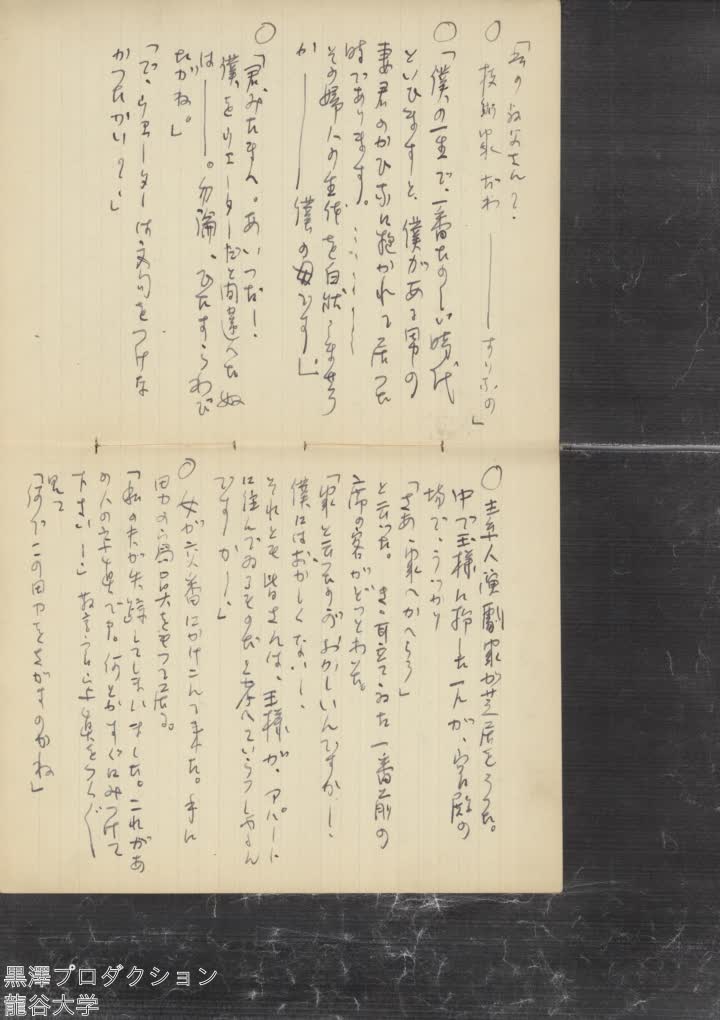 「君のお父さん？
○ 技術家だわ———すりふの」
○「僕の一生で、一番たのしい時代
といひますと、僕がある男の
妻君のかひなに抱かれて居つた
時であります。
その婦人の を白状しませう
か———僕の母です」
○「君みたまへ。あいつだ！
僕をウエーターだと間違へた奴
は———。勿論、ひたすらわび
たがね。」
「で、ウエーターは文句をつけな
かつたかい？」
○ 素人演劇家が芝居をうつた。
中で王様に扮した一人が、宮殿の
場で、うつかり
「さあ、家へかへらう」
と云つた。きゝ耳立てゝゐた一番前の
席の客がどつとわらた。
「家と云ふのがおかしいんですか！
僕にはおかしくない！
それとも皆さんは、王様が、アパートに
に住んでゐるものだと考へていらつしやるん
ですか！」
○ 女が交番にかけこんで来た。手に
男の写真をもつて居る。
「私の夫が失踪してしまいました。これがあ
の人の写真です。何とかすぐにみつけて
下さい！」 写真をつくゞ
見て
「何でこの男をさがすのかね」
黒澤プロダクション
龍谷大学